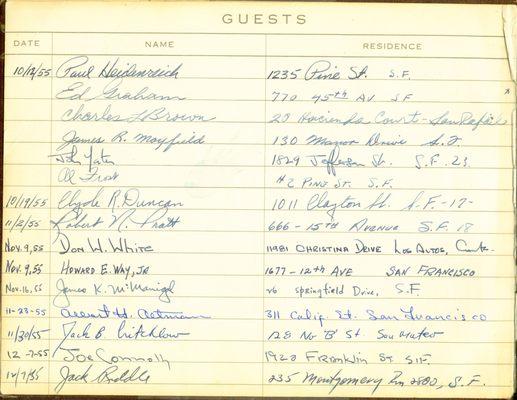 GUESTS
DATE NAME RESIDENCE
10/12/55 Paul Heidenreich 1235 Pine St. S.F.
Ed Graham 770 45th AV SF
Charles L Brown 20 Hacienda Court - San Rafael
James R. Mayfield 130 Manor Drive S.F.
John Yates 1829 Jefferson St. S.F. 23
Al Frost #2 PINE ST. S.F.
10/19/55 Clyde R. Duncan 1011 Clayton St. S.F. -17-
11/2/55 Robert N. Pratt 666 - 15th AVENUE S.F. 18
Nov. 9, 55 DON W. WHITE 11981 CHRISTINA DRIVE LOS ALTOS,
Nov. 9, 55 HOWARD E. WAY, JR 1677 - 12th AVE SAN FRANCISCO
Nov. 16, 55 James K. McManigal 26 Springfield Drive, S.F.
11-23-55 311 Calif. St. San Francisco
11/30/55 Jack B. Critchlow 128 No 'B' St. San Mateo
12-7-55 Joe Connolly 1920 FRANKLIN ST S.F.
12/7/55 Jack Riddle 235 Montgomery Rm 2880, S.F.